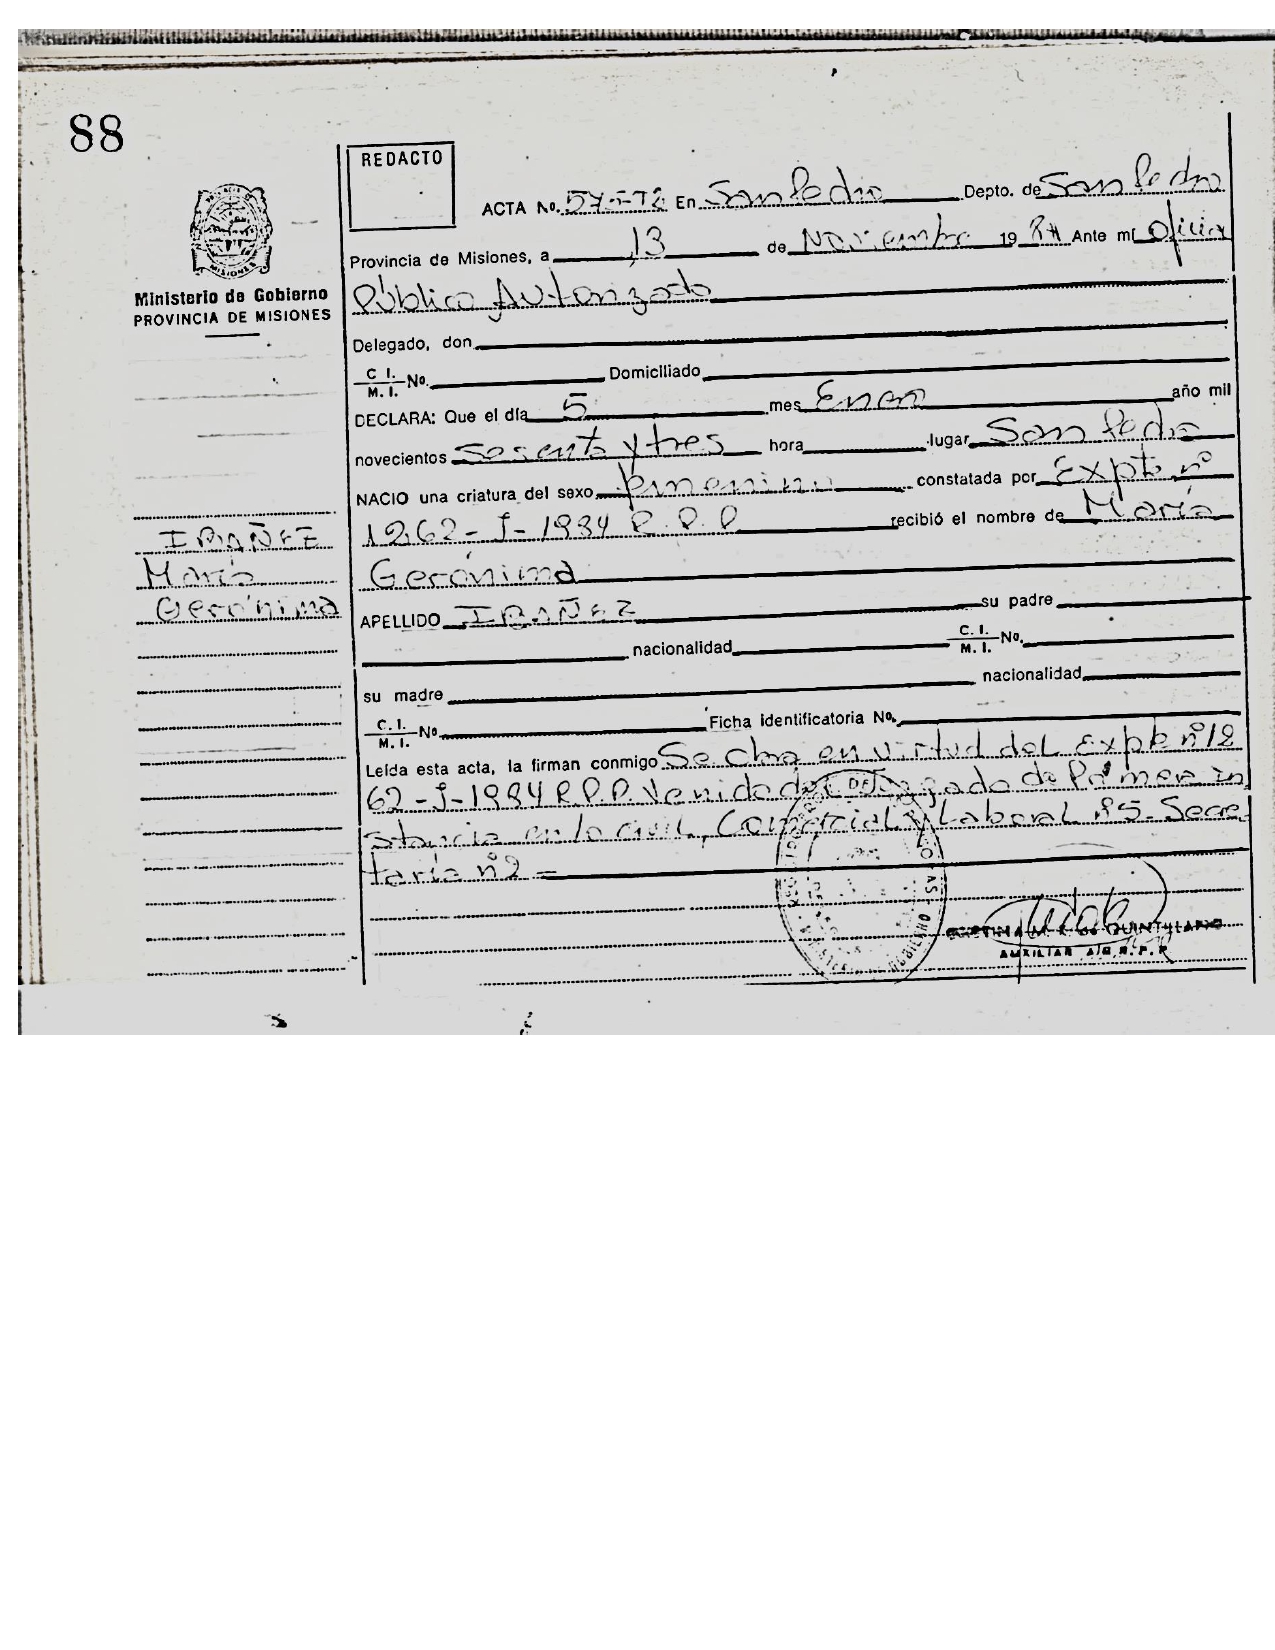 88
REDACTO
ACTA No. 575-T2 En San Pedro Depto. de San Pedro
Provincia de Misiones, a 13 de Noviembre 19 84 Ante mí Oficial
Público Autorizado
Ministerio de Gobierno
PROVINCIA DE MISIONES
Delegado, don
C. I. M. I. No. Domiciliado
DECLARA: Que el día 5 mes Enero año mil
novecientos sesenta y tres hora lugar San Pedro
NACIO una criatura del sexo femenino constatada por Expte nº
1262-I-1984 R.P.P recibió el nombre de María
Gerónima
IBAÑEZ
María
Gerónima
APELLIDO IBAÑEZ su padre
nacionalidad C. I. M. I. No.
su madre nacionalidad
C. I. M. I. No Ficha identificatoria No.
Leída esta acta, la firman conmigo Se Labra en virtud del Expte nº 12
62-I-1984 R.P.P. Venido del Juzgado de Primer in
stancia en lo civil, Comercial y Laboral nº5. Secre
taría nº2 =
QUINTILIANO
AUXILIAR